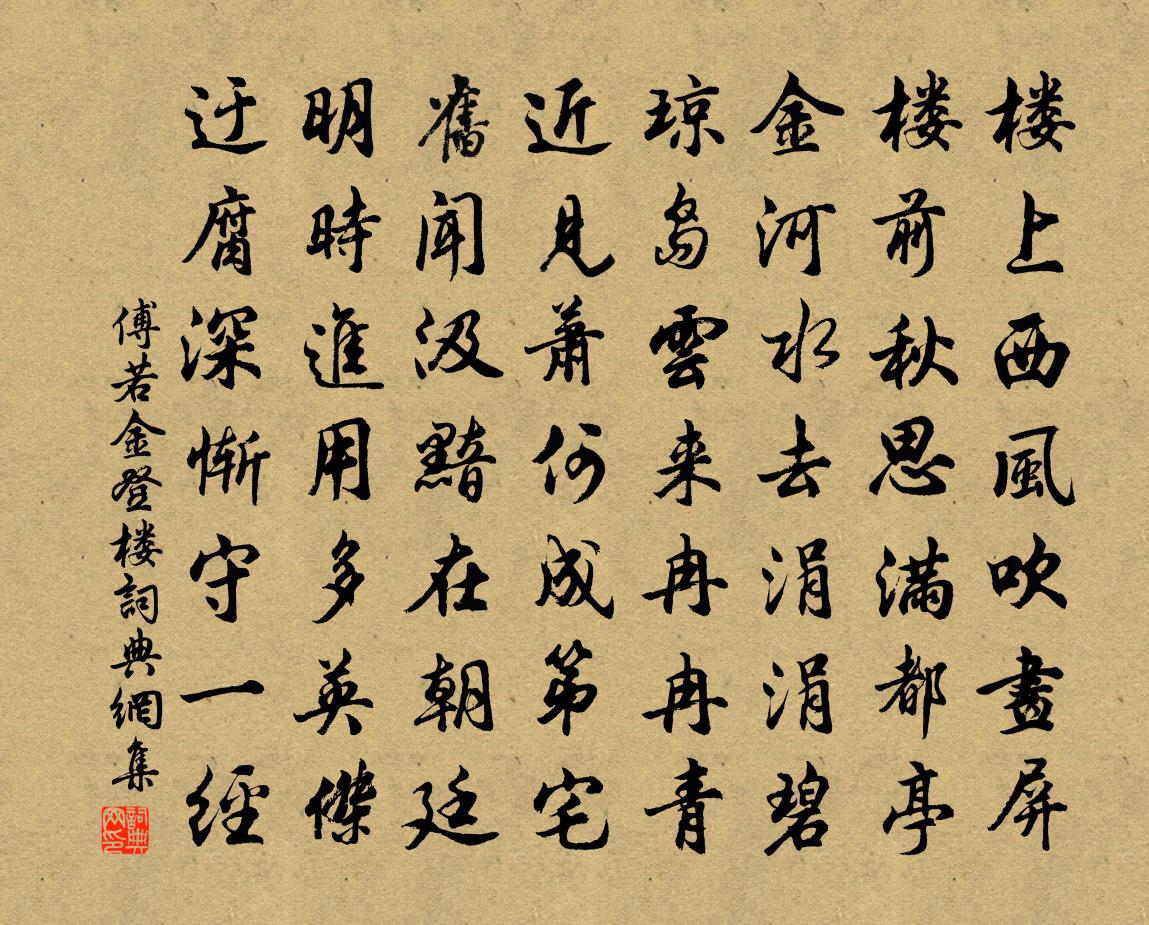 楼上西風吹畫屏
楼前秋思滿都亭
金河水去涓涓碧
琼島雲来冉冉青
近見蕭何成第宅
舊聞汲黯在朝廷
明時進用多英傑
迂腐深慚守一經
傅若金登楼詞典網集
詞典网印